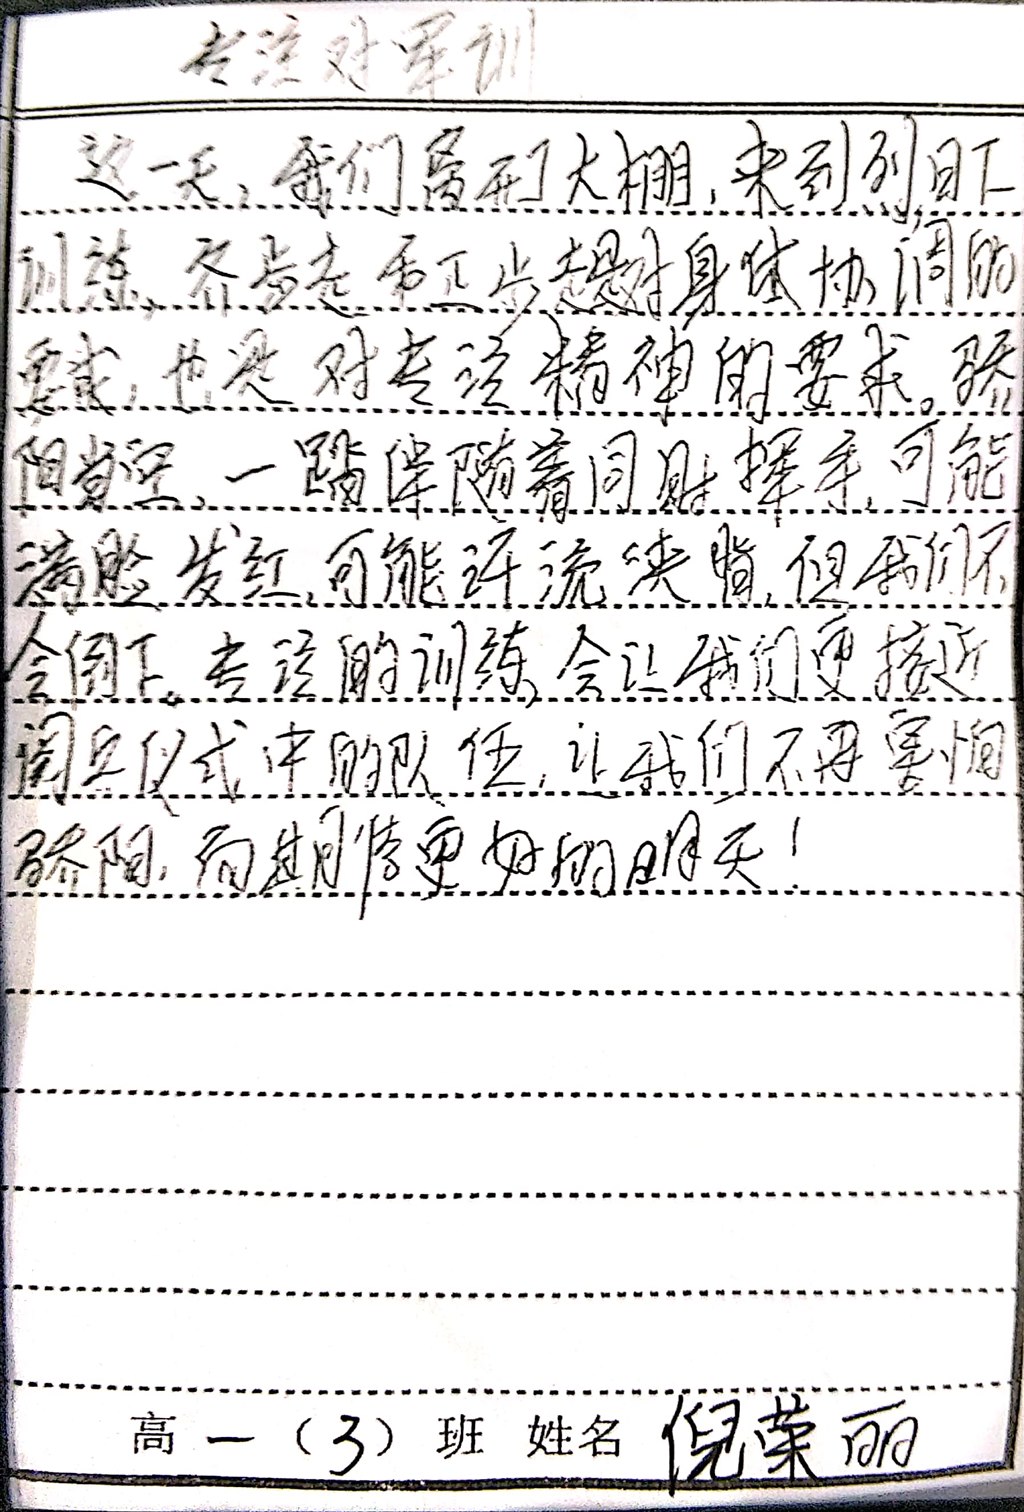 专注对军训
这一天，我们离开了大棚，来到烈日下
训练，齐步走和正步是对身体协调的
要求，也是对专注精神的要求。骄
阳当空，一踏伴随着同时摆手，可能
满脸发红，可能汗流浃背，但我们不
会倒下。专注的训练，会让我们更接近
阅兵仪式中的队伍，让我们不再害怕
骄阳，而期待更好的明天！
高一（3）班 姓名 倪荣丽